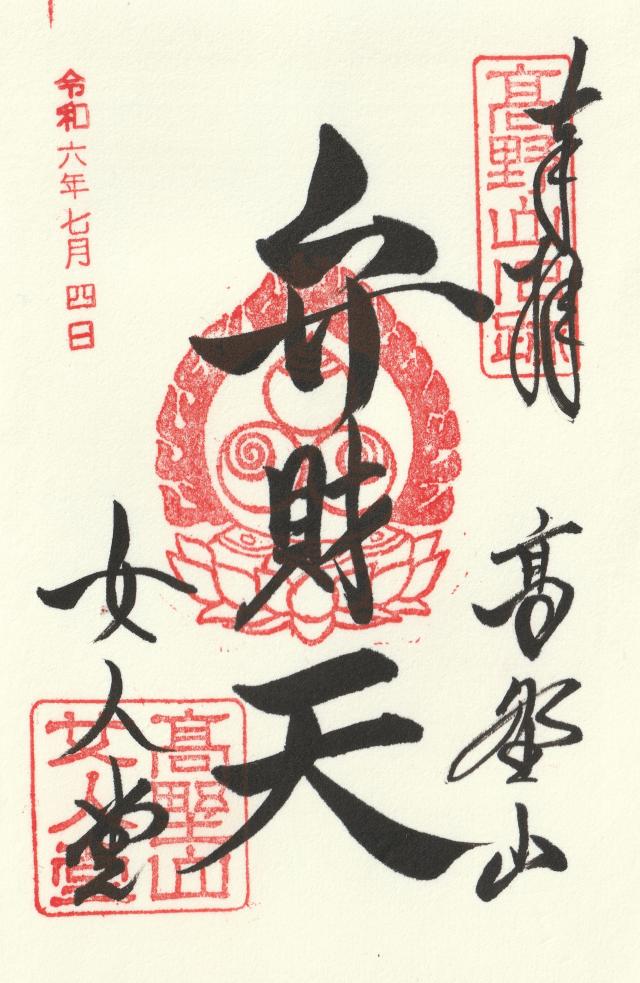 奉拝
高野山旧跡
高野山
弁財天
女人堂
高野山
女人堂
令和六年七月四日